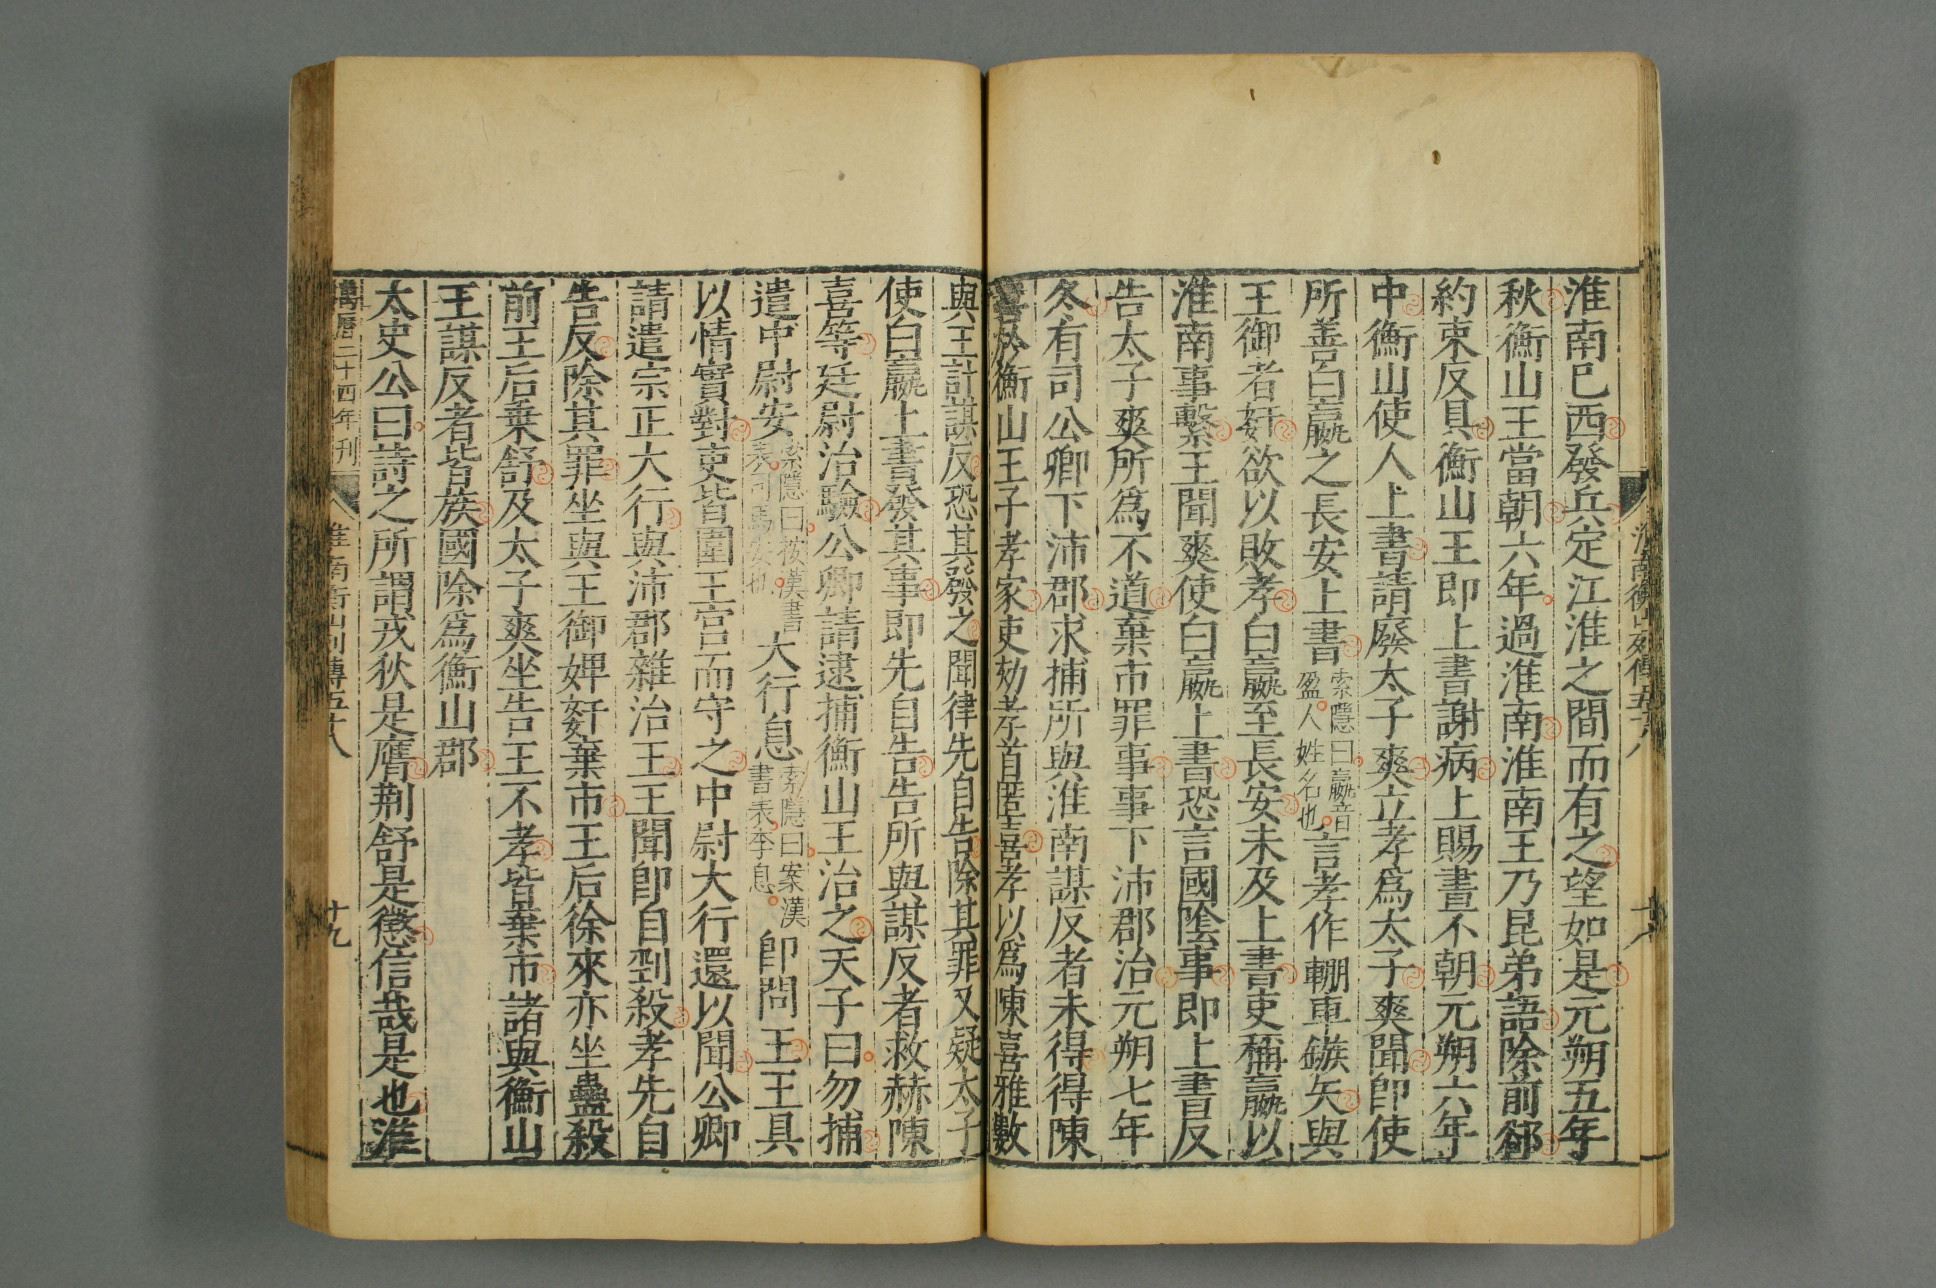 淮南衡山列傳五十八
十八
淮南已西發兵定江淮之間而有之望如是元朔五年
秋衡山王當朝六年過淮南淮南王乃昆弟語除前郤
約束反具衡山王即上書謝病上賜書不朝元朔六年
中衡山使人上書請廢太子爽立孝爲太子爽聞即使
所善白嬴之長安上書索隱曰嬴音盈人姓名也言孝作輣車鏃矢與
王御者奸欲以敗孝白嬴至長安未及上書吏捕嬴以
淮南事繫王聞爽使白嬴上書恐言國陰事即上書反
告太子爽所爲不道棄市罪事事下沛郡治元朔七年
冬有司公卿下沛郡求捕所與淮南謀反者未得得陳
喜於衡山王子孝家吏劾孝首匿喜孝以爲陳喜雅數
與王計謀反恐其發之聞律先自告除其罪又疑太子
使白嬴上書發其事即先自告告所與謀反者救赫陳
喜等廷尉治驗公卿請逮捕衡山王治之天子曰勿捕
遣中尉安索隱曰按漢書表司馬安也大行息索隱曰案漢書表李息即問王王具
以情實對吏皆圍王宮而守之中尉大行還以聞公卿
請遣宗正大行與沛郡雜治王王聞即自剄殺孝先自
告反除其罪坐與王御婢奸棄市王后徐來亦坐蠱殺
前王后乘舒及太子爽坐告王不孝皆棄市諸與衡山
王謀反者皆族國除爲衡山郡
太史公曰詩之所謂戎狄是膺荆舒是懲信哉是也淮
萬曆二十四年刊
淮南衡山列傳五十八
十九